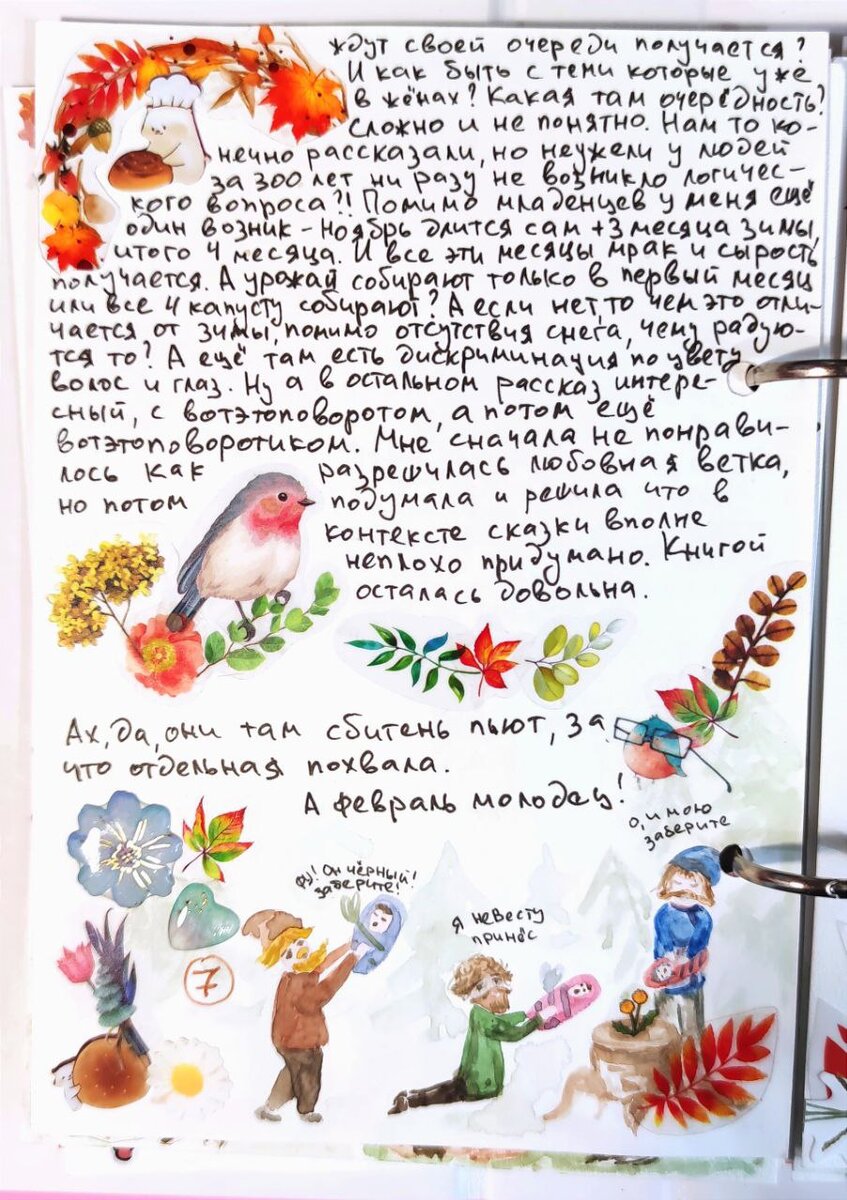 ждут своей очереди получается?
И как быть с теми которые уже
в жёнах? Какая там очерёдность?
Сложно и не понятно. Нам то ко-
нечно рассказали, но неужели у людей
за 300 лет ни разу не возникло логичес-
кого вопроса?! Помимо младенцев у меня ещё
один возник - Ноябрь длится сам +3 месяца зимы,
итого 4 месяца. И все эти месяцы мрак и сырость
получается. А урожай собирают только в первый месяц
или все 4 капусту собирают? А если нет, то чем это отли-
чается от зимы, помимо отсутствия снега, чему радую-
тся то? А ещё там есть дискриминация по цвету
волос и глаз. Ну а в остальном рассказ интере-
сный, с вотэтоповоротом, а потом ещё
вотэтоповоротиком. Мне сначала не понрави-
лось как разрешилась любовная ветка,
но потом подумала и решила что в
контексте сказки вполне
неплохо придумано. Книгой
осталась довольна.
Ах, да, они там сбитень пьют, за
что отдельная похвала.
А февраль молодец!
о, и мою
заберите
фу! Он чёрный!
заберите!
я невесту
принёс
7